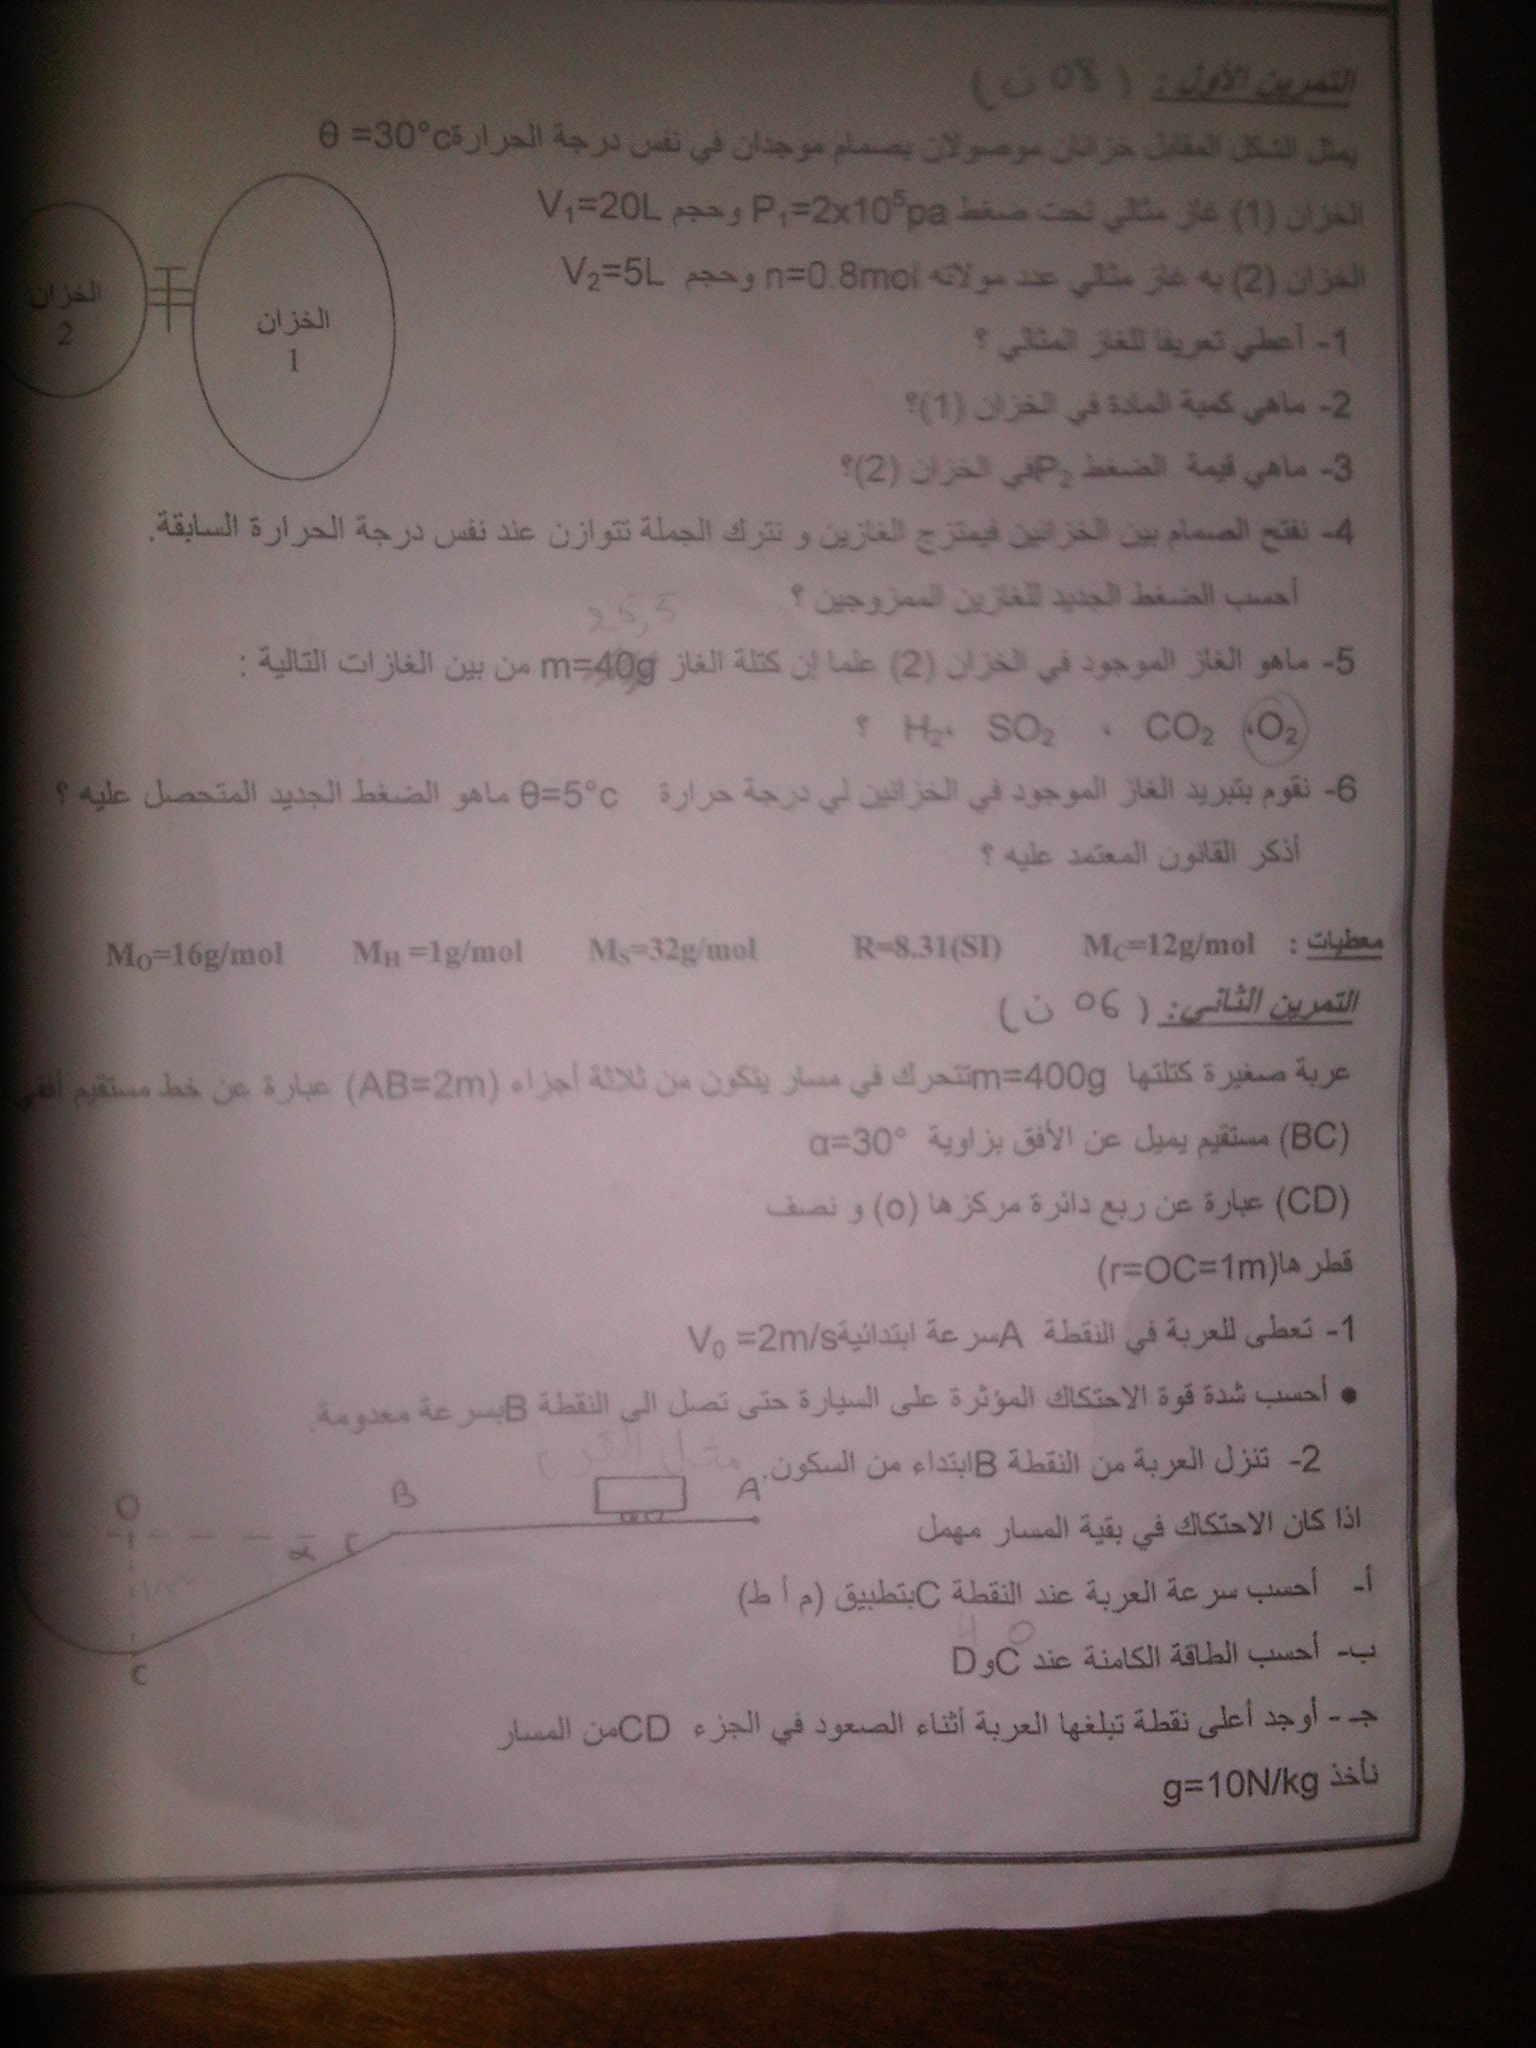 التمرين الأول : ( 08 ن )
يمثل الشكل المقابل خزانان موصولان بصمام موجدان في نفس درجة الحرارة θ =30°c
الخزان (1) غاز مثالي تحت ضغط P₁=2x10⁵pa وحجم V₁=20L
الخزان (2) به غاز مثالي عدد مولاته n=0.8mol وحجم V₂=5L
الخزان 1
الخزان 2
1- أعطي تعريفا للغاز المثالي ؟
2- ماهي كمية المادة في الخزان (1)؟
3- ماهي قيمة الضغط P₂في الخزان (2)؟
4- نفتح الصمام بين الخزانين فيمتزج الغازين و نترك الجملة تتوازن عند نفس درجة الحرارة السابقة.
أحسب الضغط الجديد للغازين الممزوجين ؟
25,5
5- ماهو الغاز الموجود في الخزان (2) علما إن كتلة الغاز m=40g من بين الغازات التالية :
O₂، CO₂ ، SO₂ ،H₂ ؟
6- نقوم بتبريد الغاز الموجود في الخزانين لي درجة حرارة θ=5°c ماهو الضغط الجديد المتحصل عليه ؟
أذكر القانون المعتمد عليه ؟
معطيات : M_C=12g/mol R=8.31(SI) M_S=32g/mol M_H =1g/mol M_O=16g/mol
التمرين الثاني : ( 06 ن )
عربة صغيرة كتلتها m=400gتتحرك في مسار يتكون من ثلاثة أجزاء (AB=2m) عبارة عن خط مستقيم أفقي
(BC) مستقيم يميل عن الأفق بزاوية α=30°
(CD) عبارة عن ربع دائرة مركزها (o) و نصف
قطرها(r=OC=1m)
1- تعطى للعربة في النقطة Aسرعة ابتدائية V₀ =2m/s
• أحسب شدة قوة الاحتكاك المؤثرة على السيارة حتى تصل الى النقطة Bبسرعة معدومة.
2- تنزل العربة من النقطة Bابتداء من السكون.
اذا كان الاحتكاك في بقية المسار مهمل
O B A
α
C
أ- أحسب سرعة العربة عند النقطة Cبتطبيق (م أ ط)
4 0
ب- أحسب الطاقة الكامنة عند CوD
جـ - أوجد أعلى نقطة تبلغها العربة أثناء الصعود في الجزء CDمن المسار
نأخذ g=10N/kg